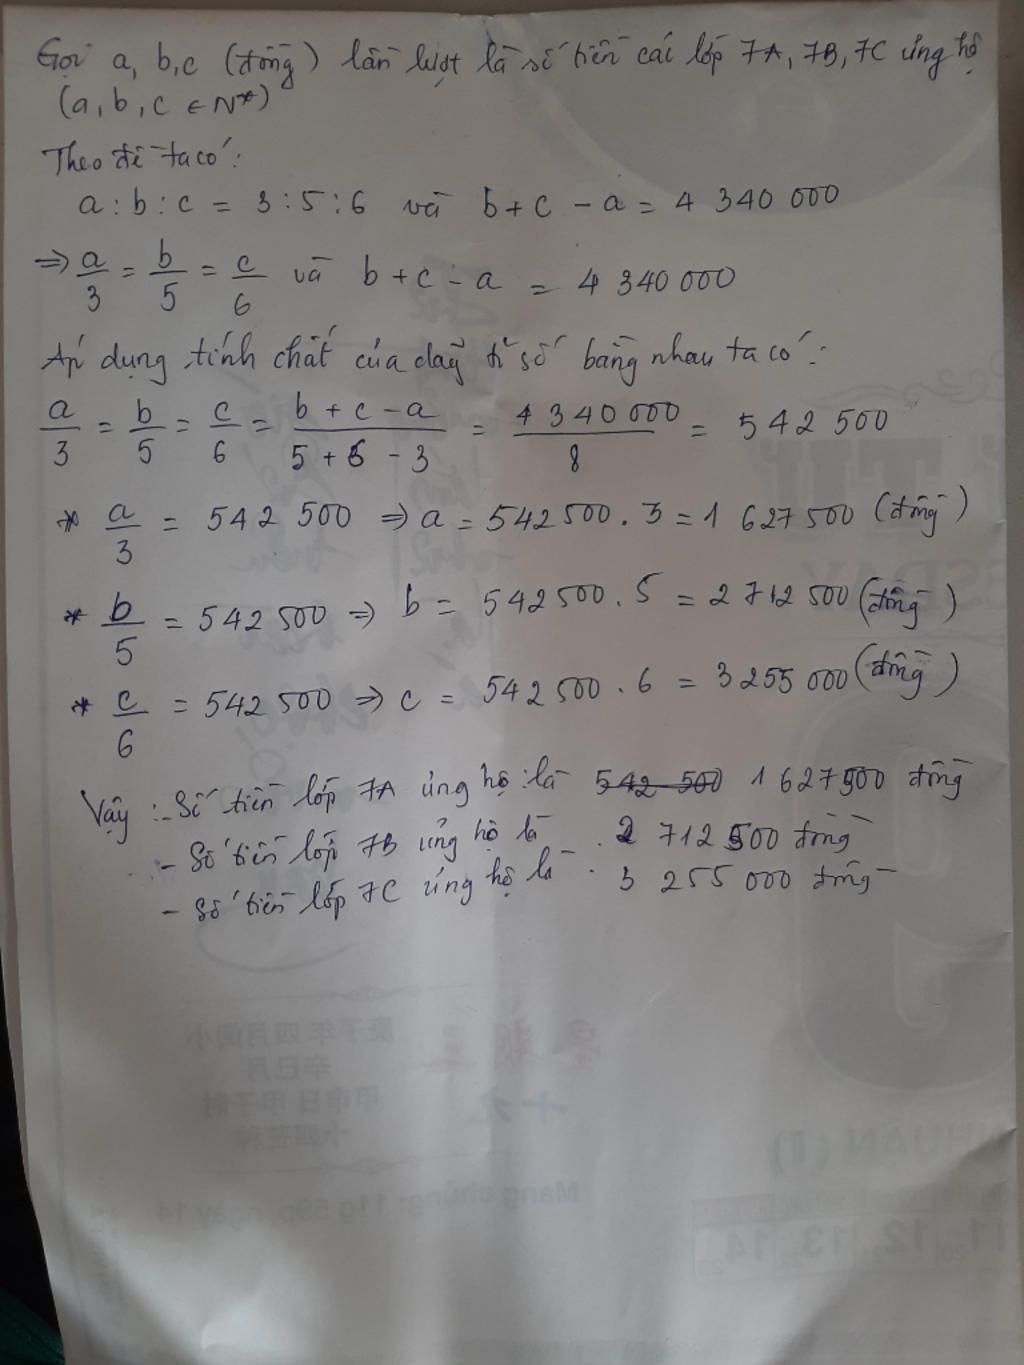 Gọi a, b, c (đồng) lần lượt là số tiền các lớp 7A, 7B, 7C ủng hộ
(a, b, c ∈ N*)
Theo đề ta có:
a : b : c = 3 : 5 : 6 và b + c - a = 4 340 000
⇒ a/3 = b/5 = c/6 và b + c - a = 4 340 000
Áp dụng tính chất của dãy tỉ số bằng nhau ta có:
a/3 = b/5 = c/6 = (b + c - a)/(5 + 6 - 3) = 4 340 000/8 = 542 500
* a/3 = 542 500 ⇒ a = 542 500 . 3 = 1 627 500 (đồng)
* b/5 = 542 500 ⇒ b = 542 500 . 5 = 2 712 500 (đồng)
* c/6 = 542 500 ⇒ c = 542 500 . 6 = 3 255 000 (đồng)
Vậy : - Số tiền lớp 7A ủng hộ là 542 500 1 627 500 đồng
- Số tiền lớp 7B ủng hộ là 2 712 500 đồng
- Số tiền lớp 7C ủng hộ là 3 255 000 đồng